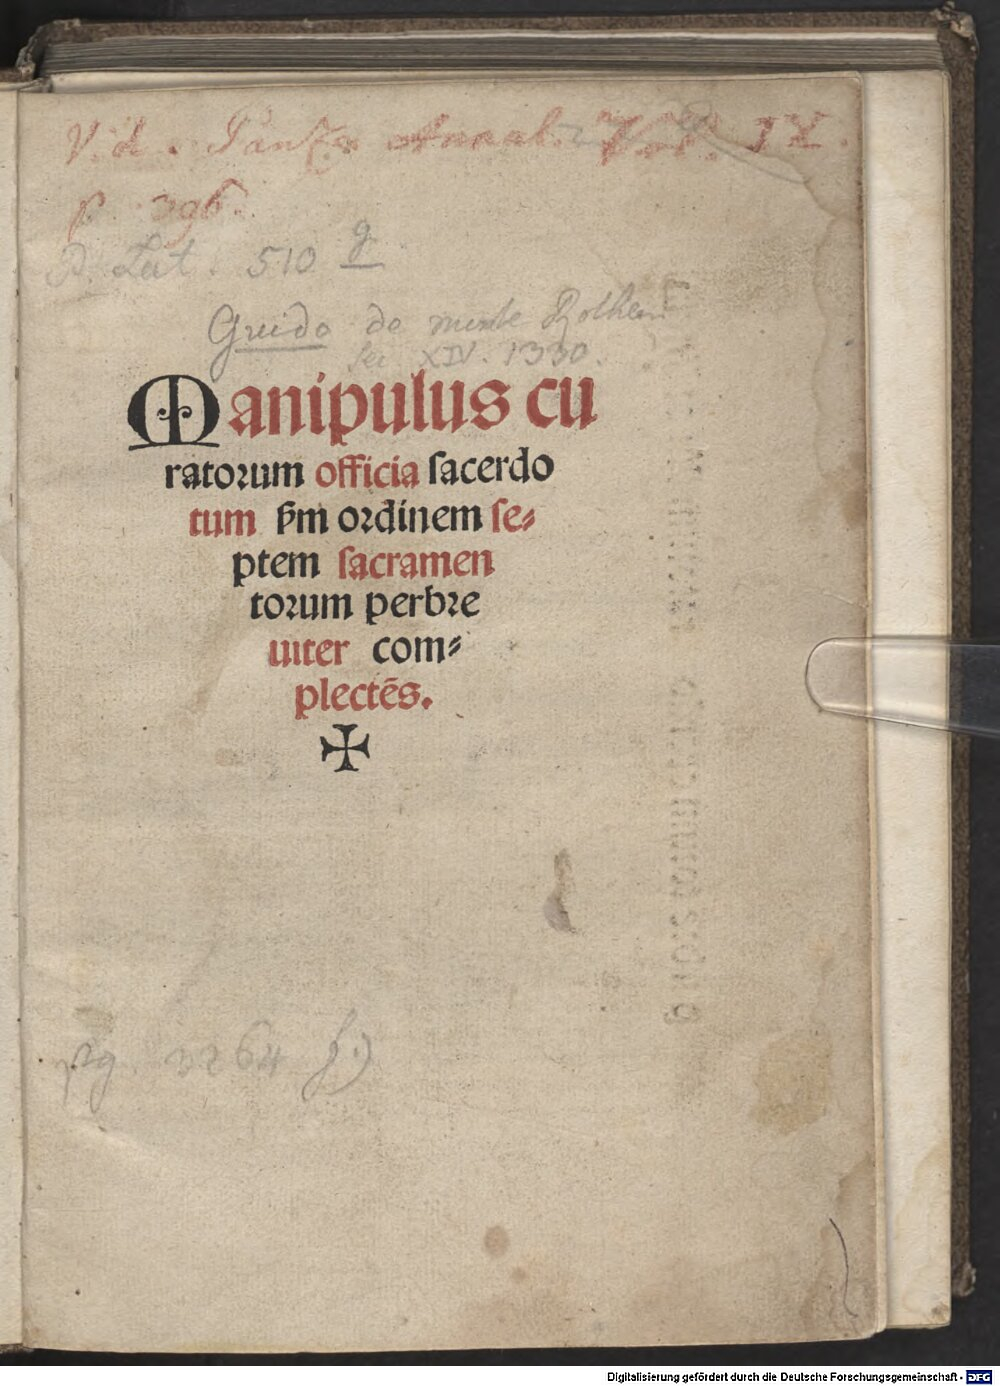 Vid. Panzer Annal. Vol. IX.
p. 396.
P. Lat. 510 g
Guido de monte Rotherii
sei XIV. 1330.
Manipulus cu
ratoꝛum officia ſacerdo
tum ẜm oꝛdinem ſe⸗
ptem ſacramen
toꝛum perbꝛe
uiter com⸗
plectēs.
pg. 3264
Digitalisierung gefördert durch die Deutsche Forschungsgemeinschaft - DFG